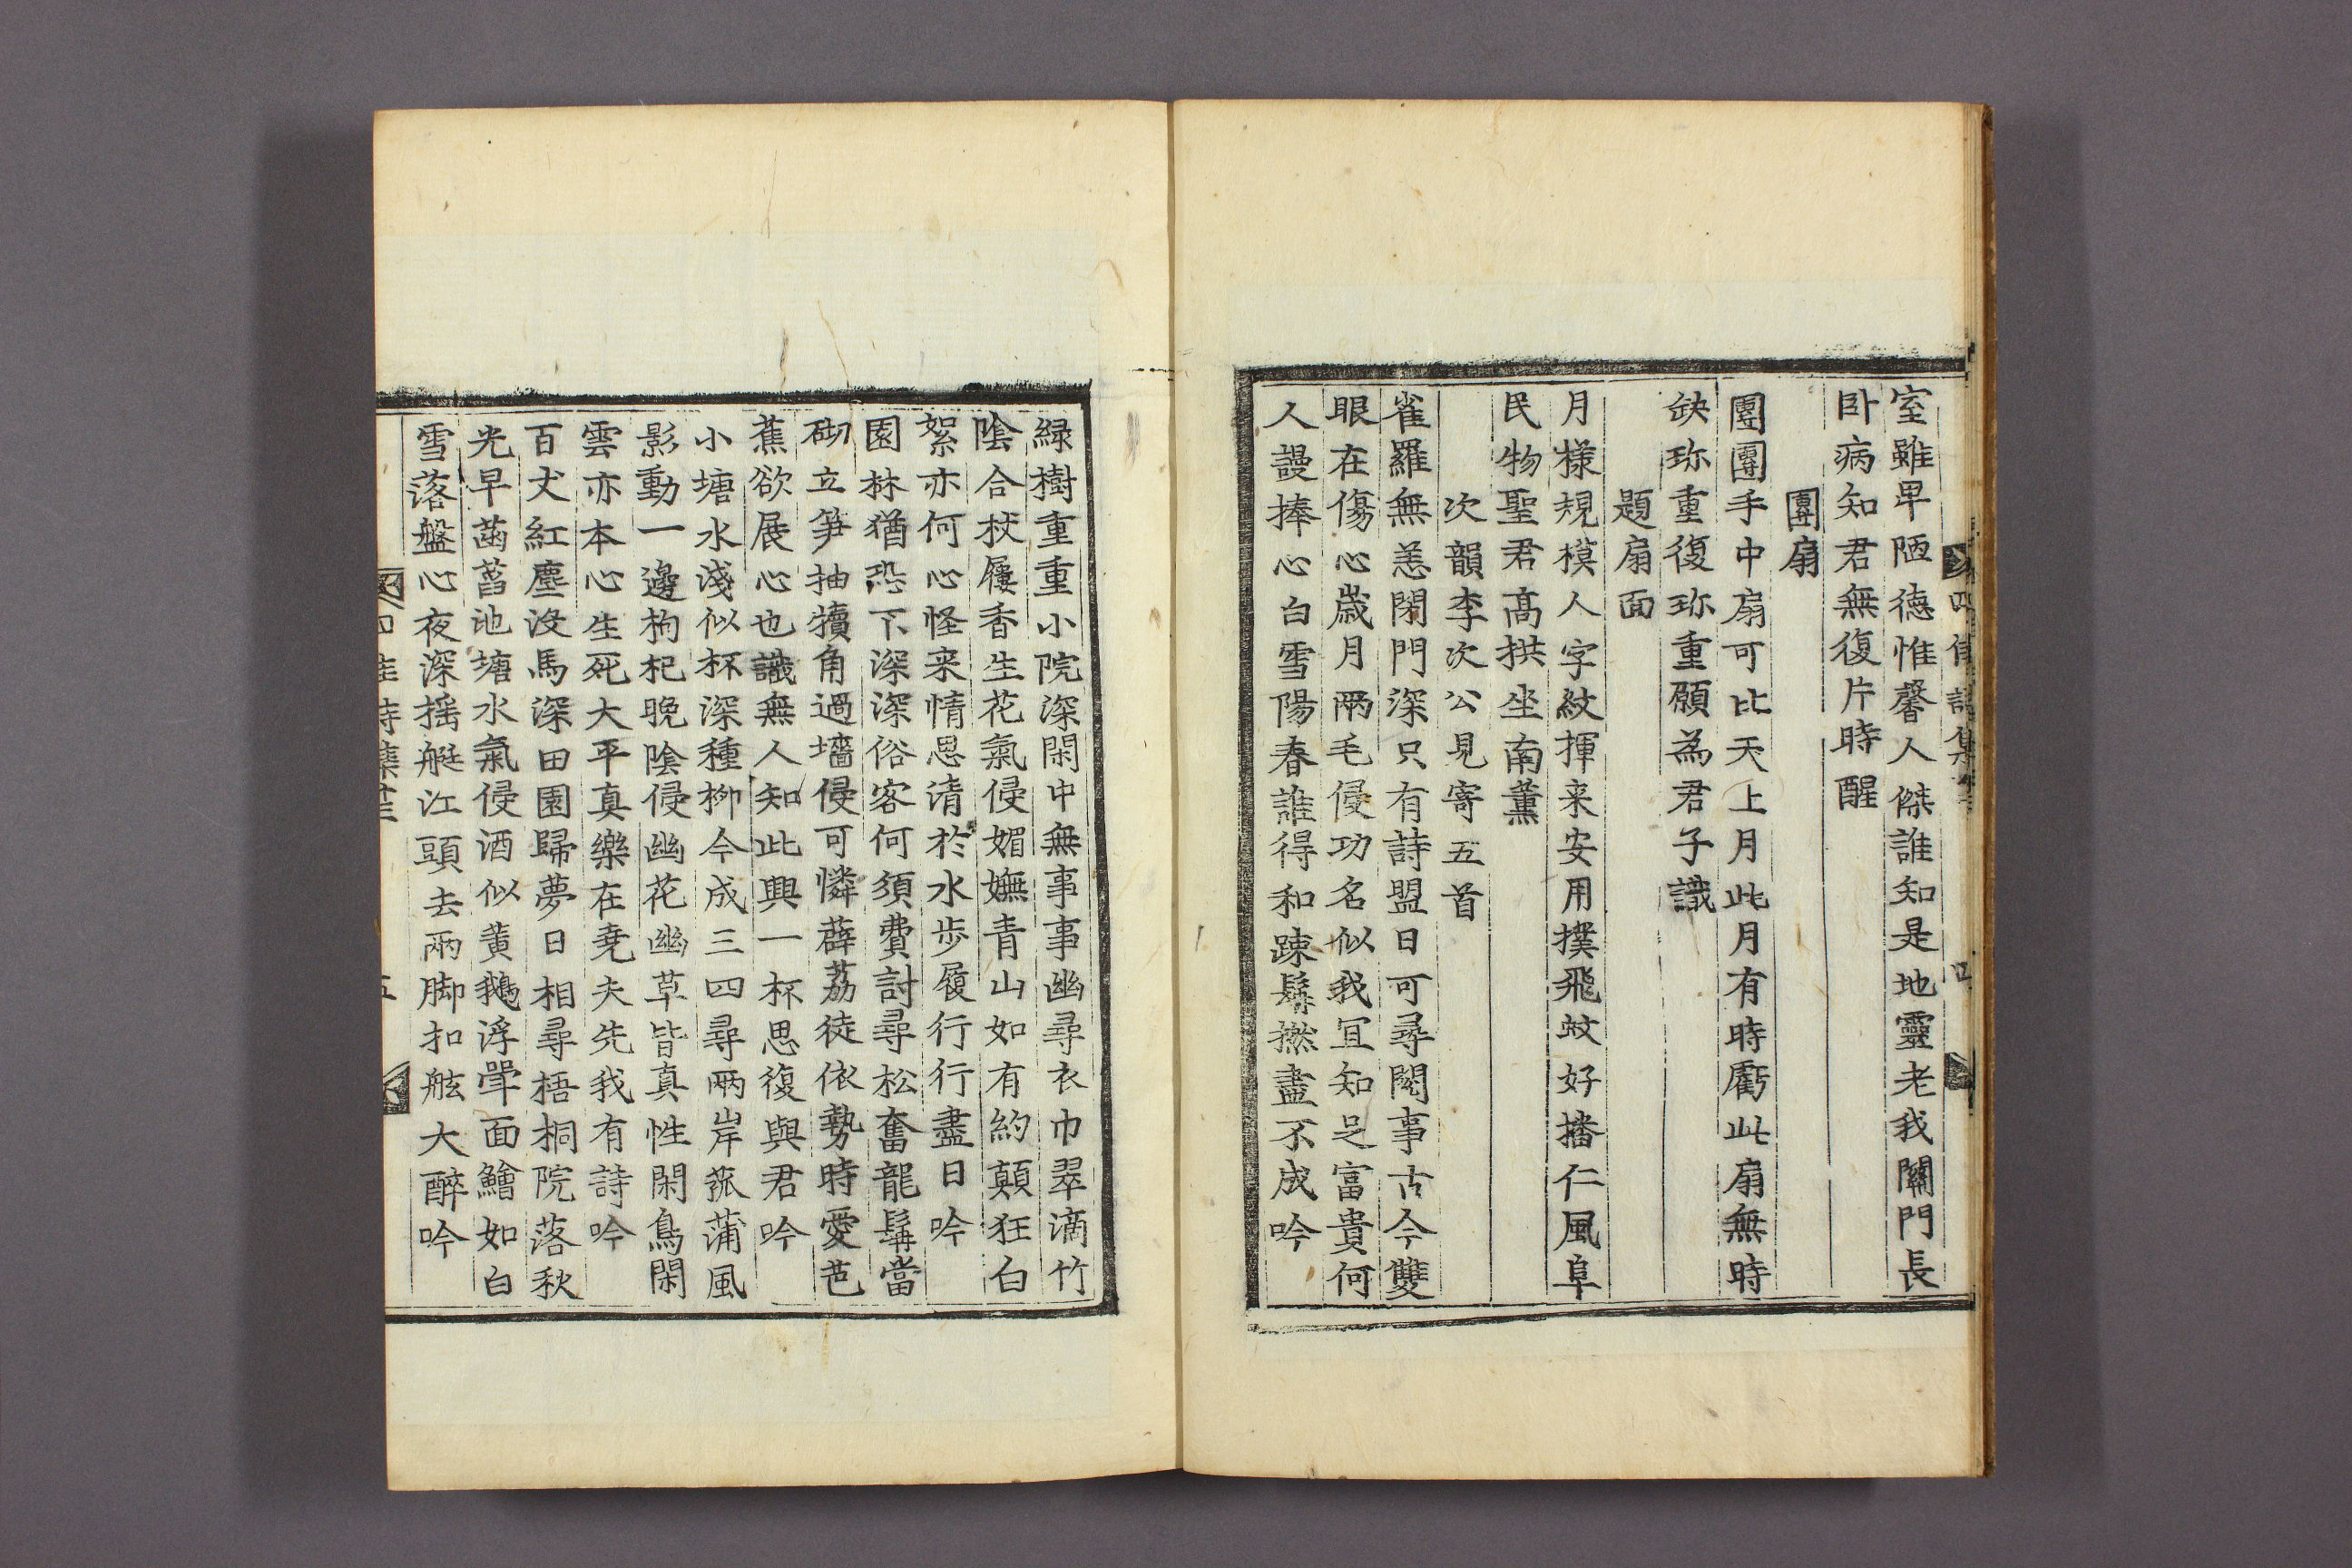 室雖卑陋德惟馨人傑誰知是地靈老我關門長
卧病知君無復片時醒
團扇
團團手中扇可比天上月此月有時虧此扇無時
缺珎重復珎重願為君子識
題扇面
月樣規模人字紋揮来安用撲飛蚊好播仁風阜
民物聖君髙拱坐南薰
次韻李次公見寄五首
雀羅無恙閉門深只有詩盟日可尋閱事古今雙
眼在傷心歲月兩毛侵功名似我冝知足富貴何
人謾捧心白雪陽春誰得和踈髯撚盡不成吟
緑樹重重小院深閑中無事事幽尋衣巾翠滴竹
陰合杖屨香生花氣侵媚嫵青山如有約顛狂白
絮亦何心怪来情思清於水步履行行盡日吟
園林猶恐下深深俗客何須費討尋松奮龍髯當
砌立笋抽犢角過墻侵可憐薜荔徒依勢時愛芭
蕉欲展心也識無人知此興一杯思復與君吟
小塘水淺似杯深種柳今成三四尋兩岸菰蒲風
影動一邊枸杞晚陰侵幽花幽草皆真性閑鳥閑
雲亦本心生死大平真樂在堯夫先我有詩吟
百丈紅塵没馬深田園歸夢日相尋梧桐院落秋
光早菡萏池塘水氣侵酒似黄鵝浮斝面鱠如白
雪落盤心夜深揺艇江頭去兩脚扣舷大醉吟